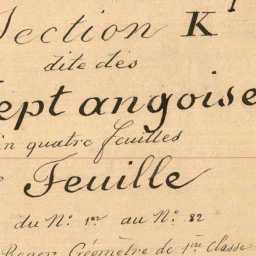 Section K
dite des
Sept angoises
en quatre feuilles
Feuille
du N.° 1er au N.° 82
Géomètre de 1ère Classe